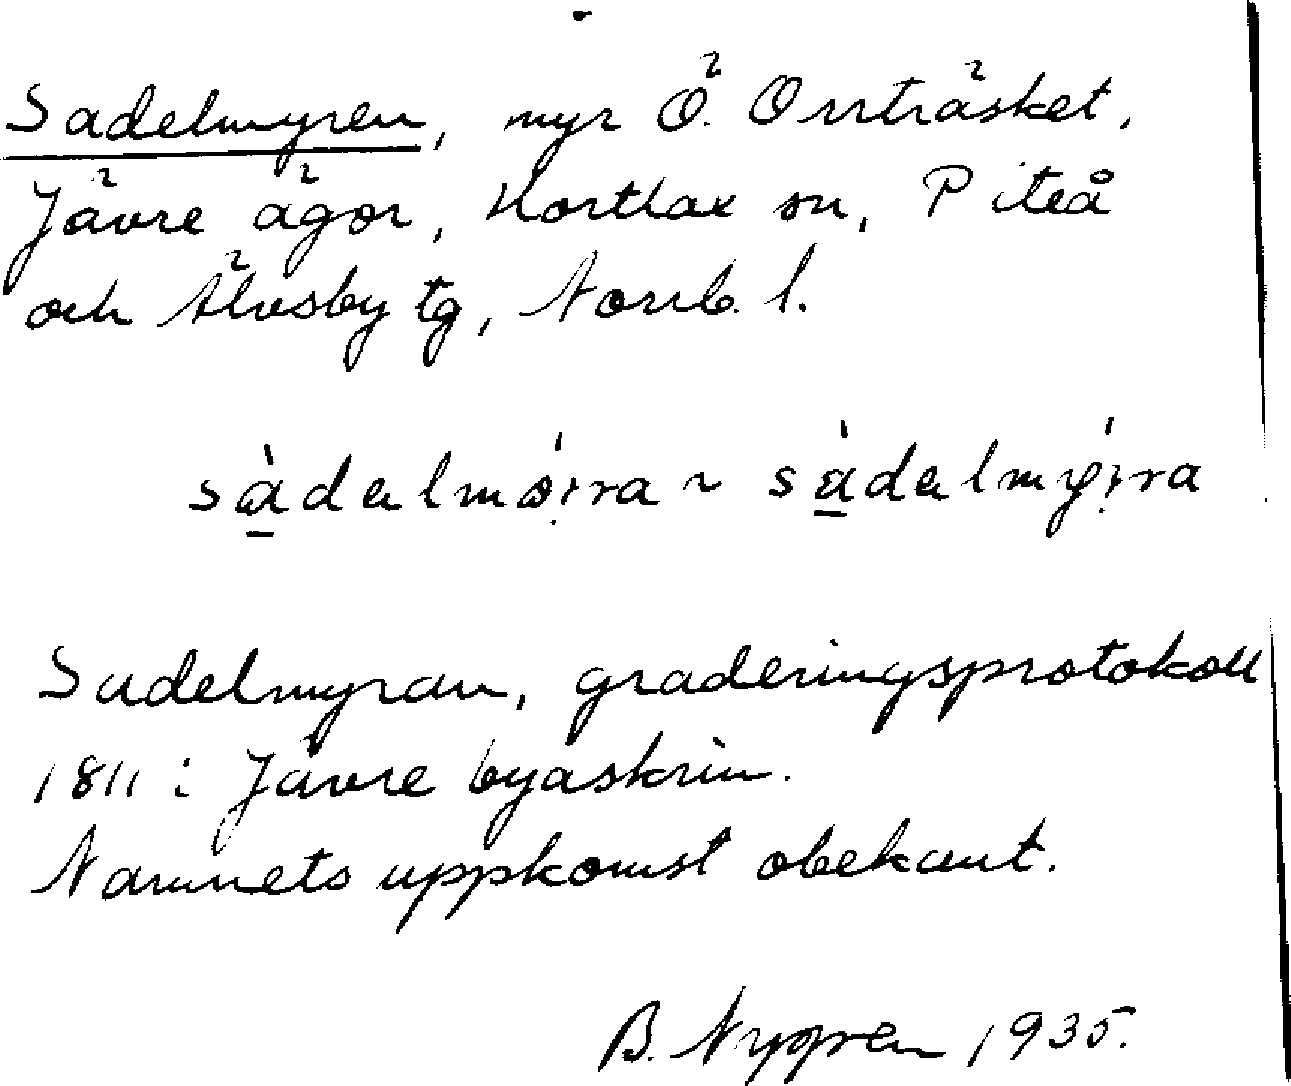 Sadelmyren, myr Ö. Orrträsket,
Jävre ägor, Hortlax sn, Piteå
och Älvsby tg, Norrb. l.
sàdalmö́ɪra ~ sàdalmý̀ɪra
Sadelmyran, graderingsprotokoll
1811 i Jävre byaskrin.
Namnets uppkomst obekant.
B. Nygren 1935.